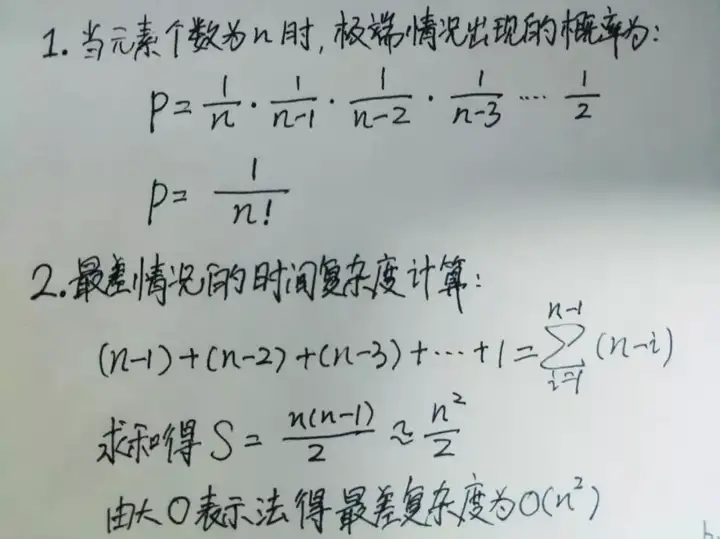 1. 当元素个数为n时, 极端情况出现的概率为:
P = 1/n · 1/(n-1) · 1/(n-2) · 1/(n-3) ···· 1/2
P = 1/n!
2. 最差情况的时间复杂度计算:
(n-1)+(n-2)+(n-3)+···+1=∑_{i=1}^{n-1}(n-i)
求和得 S = n(n-1)/2 ≈ n²/2
由大O表示法得最差复杂度为O(n²)